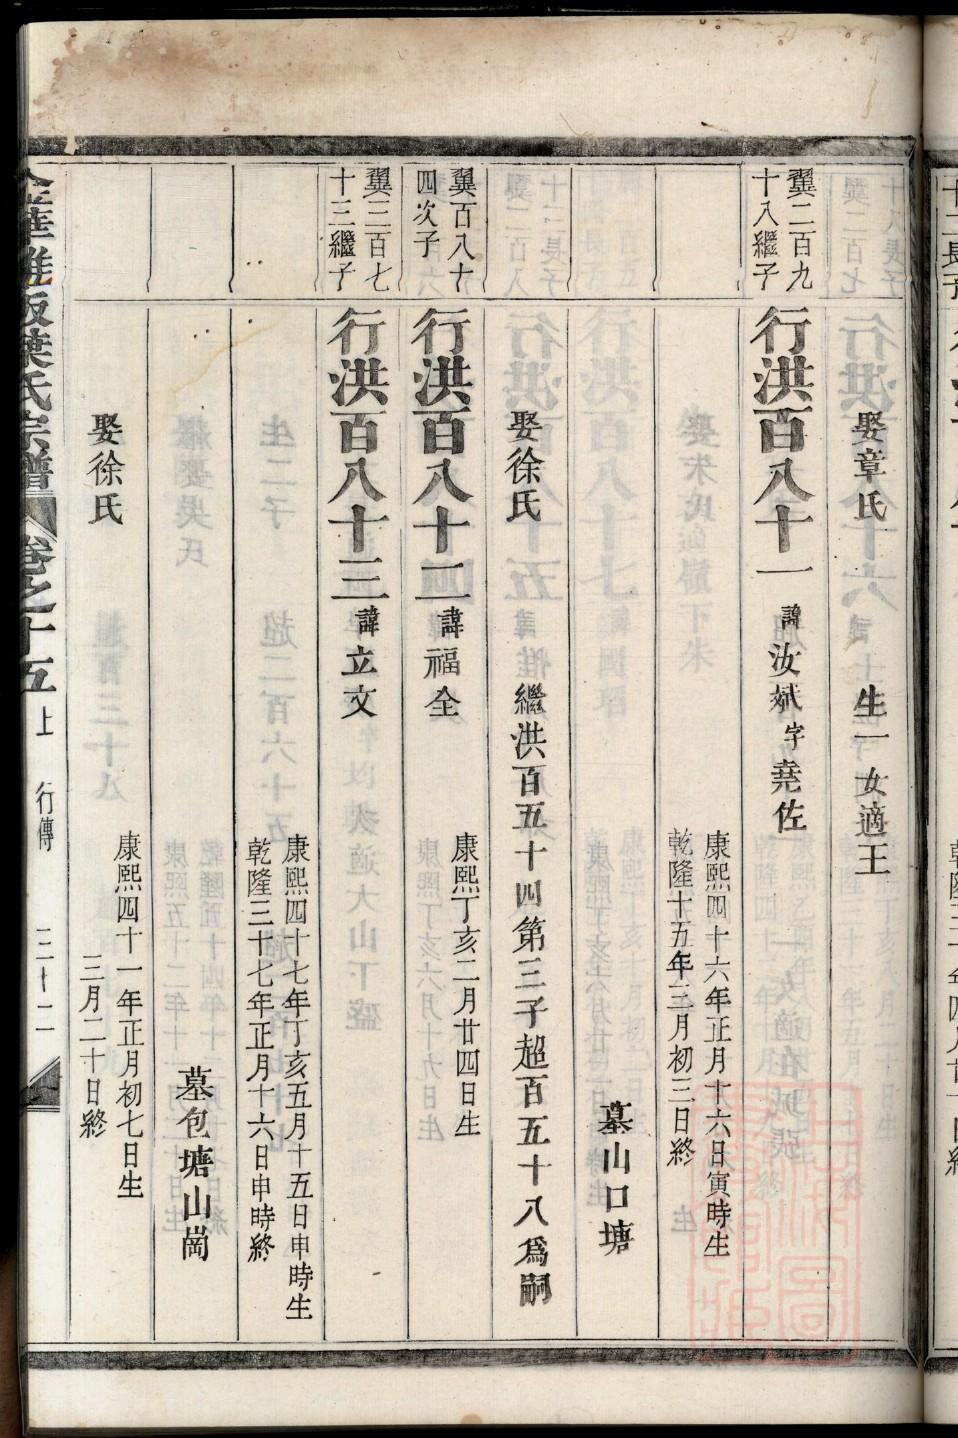 娶章氏
生一女適王
翼二百九
十八繼子
行洪百八十一
諱汝斌字堯佐
康熙四十六年正月十六日寅時生
乾隆十五年三月初三日終
墓山口塘
娶徐氏
繼洪百五十四第三子超百五十八爲嗣
翼百八十
四次子
行洪百八十二
諱福全
康熙丁亥二月廿四日生
翼三百七
十三繼子
行洪百八十三
諱立文
康熙四十七年丁亥五月十五日申時生
乾隆三十七年正月十六日申時終
墓包塘山崗
娶徐氏
康熙四十一年正月初七日生
三月二十日終
金華雅畈葉氏宗譜
卷之十五
上
行傳
三十二